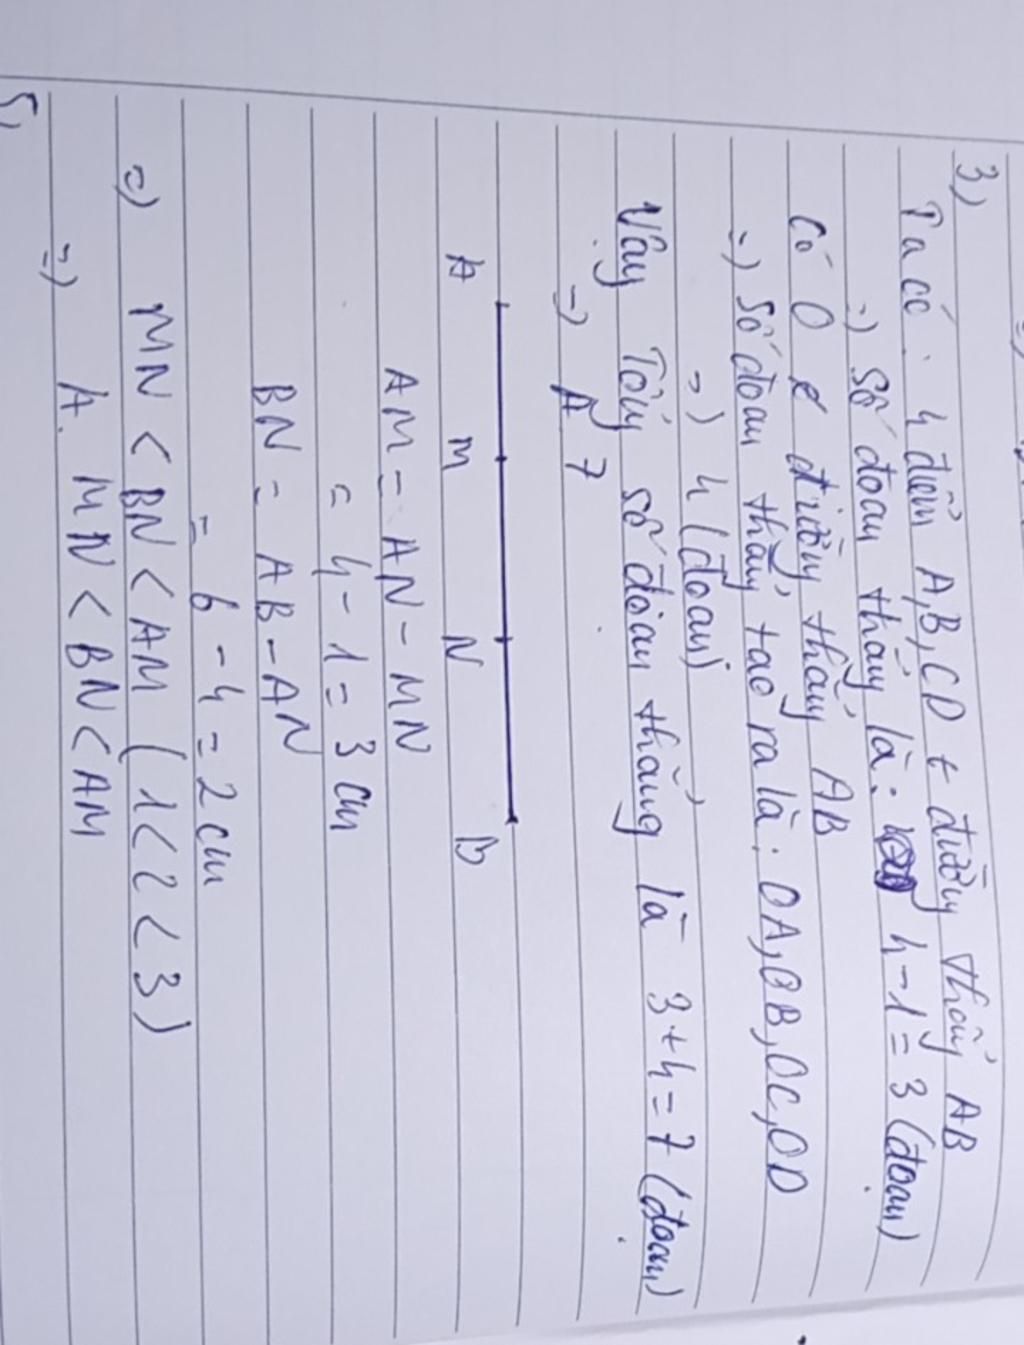 3)
Ta có: 4 điểm A, B, C D t đường thẳng AB
=) Số đoạn thẳng là: 4 - 1 = 3 (đoạn)
Có O € đường thẳng AB
=) Số đoạn thẳng tạo ra là: OA, OB, OC, OD
=) 4 (đoạn)
Vậy Tổng số đoạn thẳng là 3 + 4 = 7 (đoạn)
=) A 7
A M N B
AM = AN - MN
= 4 - 1 = 3 cm
BN = AB - AN
= 6 - 4 = 2 cm
=) MN < BN < AM (1 < 2 < 3)
=) A. MN < BN < AM
5,